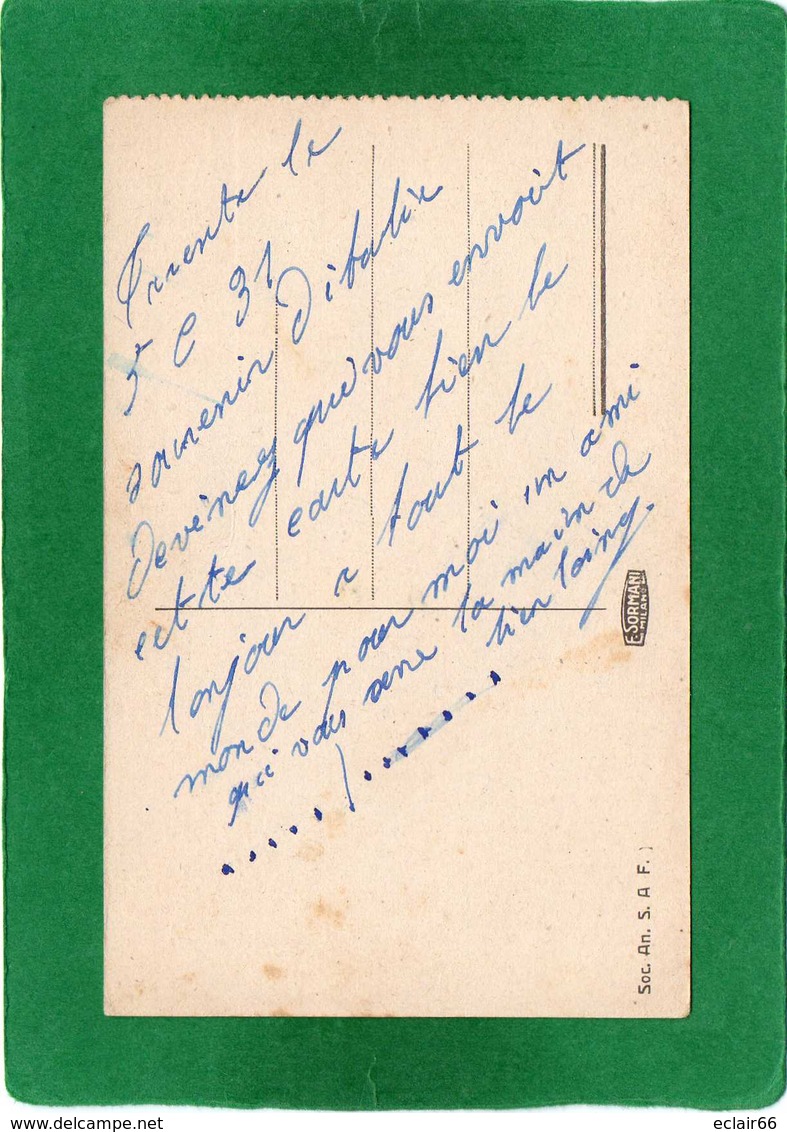 Trente le
5 C 31
souvenir d'italie
devinez que vous envoit
cette carte bien le
bonjour a tout le
monde pour moi un ami
qui vous serre la main de
bien loing.
E. SORMANI
MILANO
Soc. An. S. A F.
eclair66